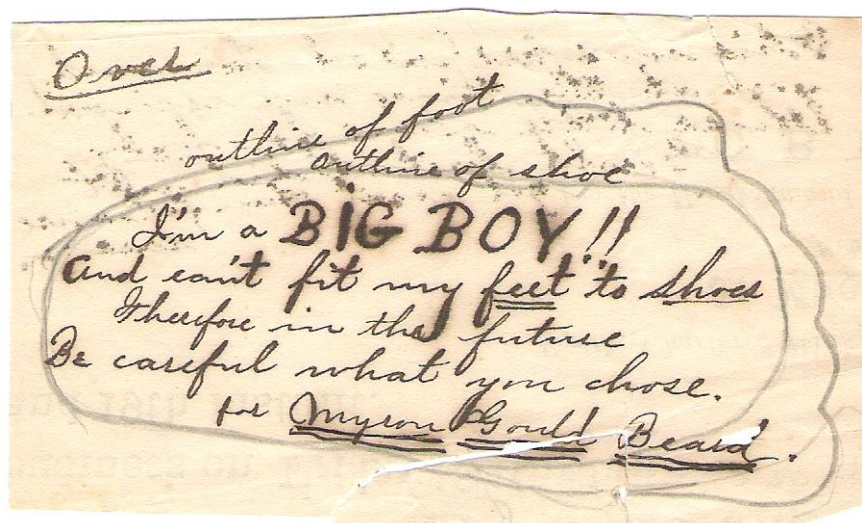 Over
outline of foot
outline of shoe
I'm a BIG BOY!!
And can't fit my feet to shoes
Therefore in the future
Be careful what you chose.
for Myron Gould Beard.